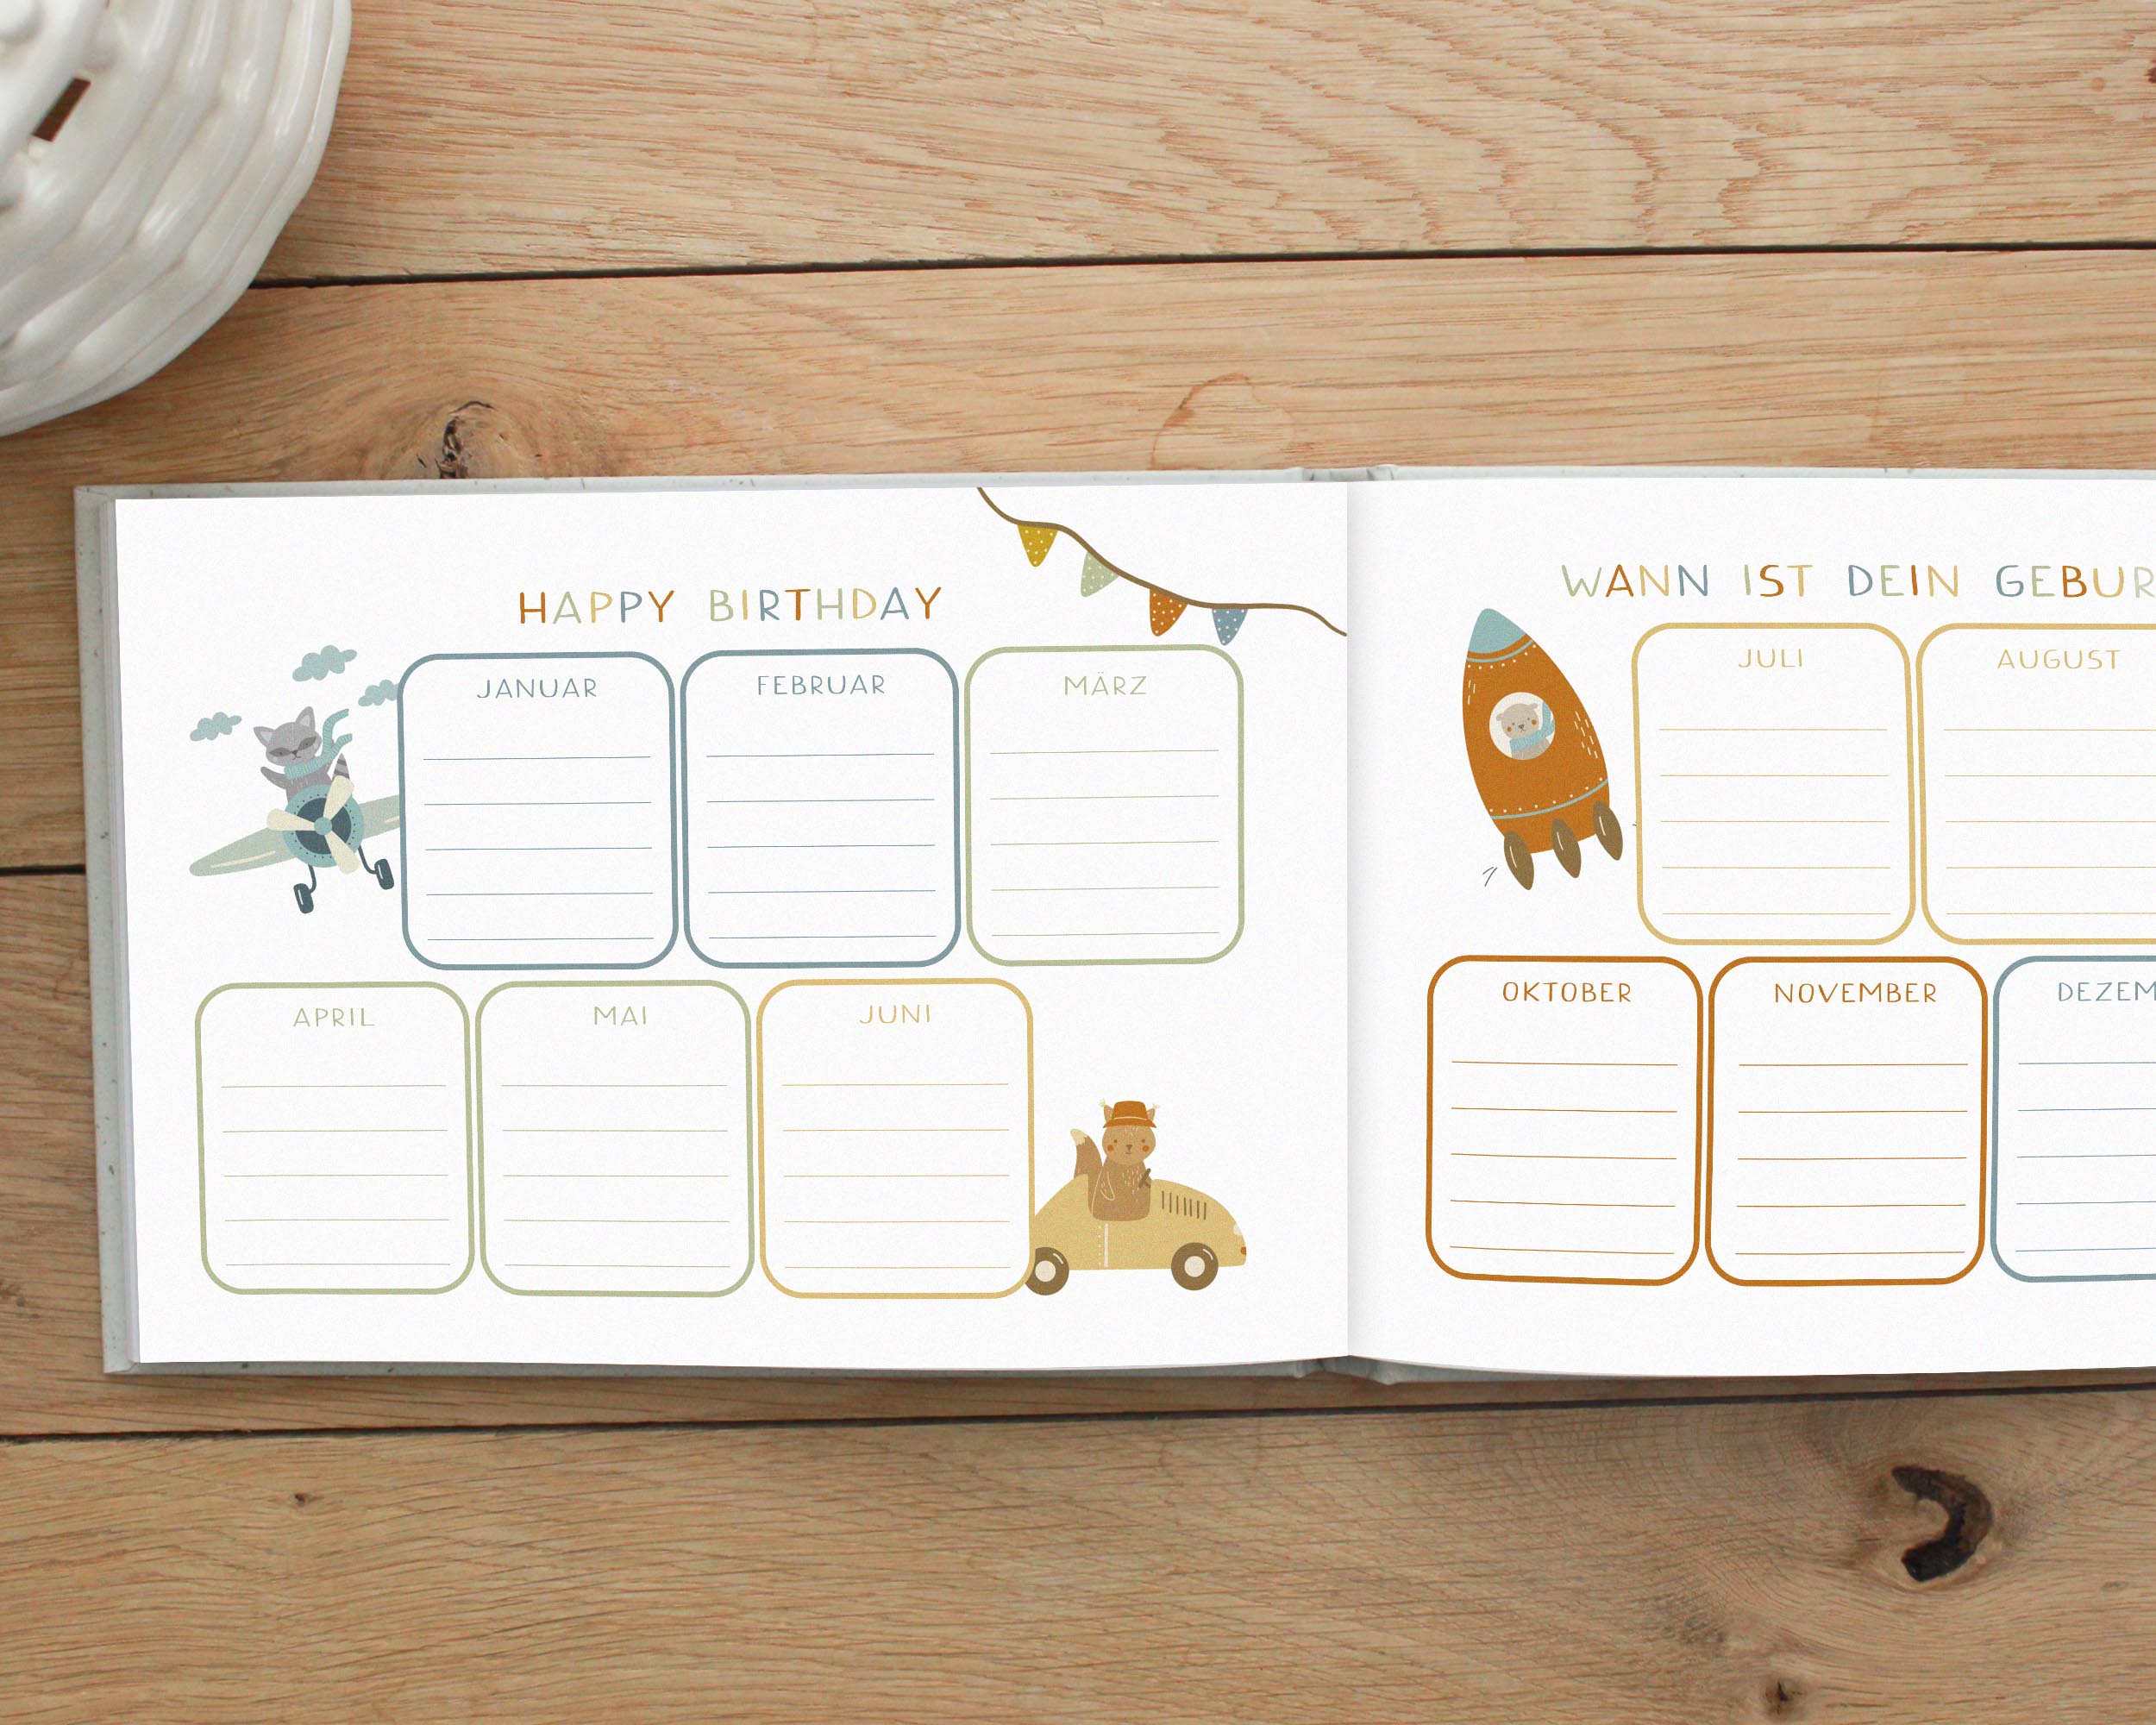 HAPPY BIRTHDAY
JANUAR
FEBRUAR
MÄRZ
APRIL
MAI
JUNI
WANN IST DEIN
JULI
AUGUST
OKTOBER
NOVEMBER